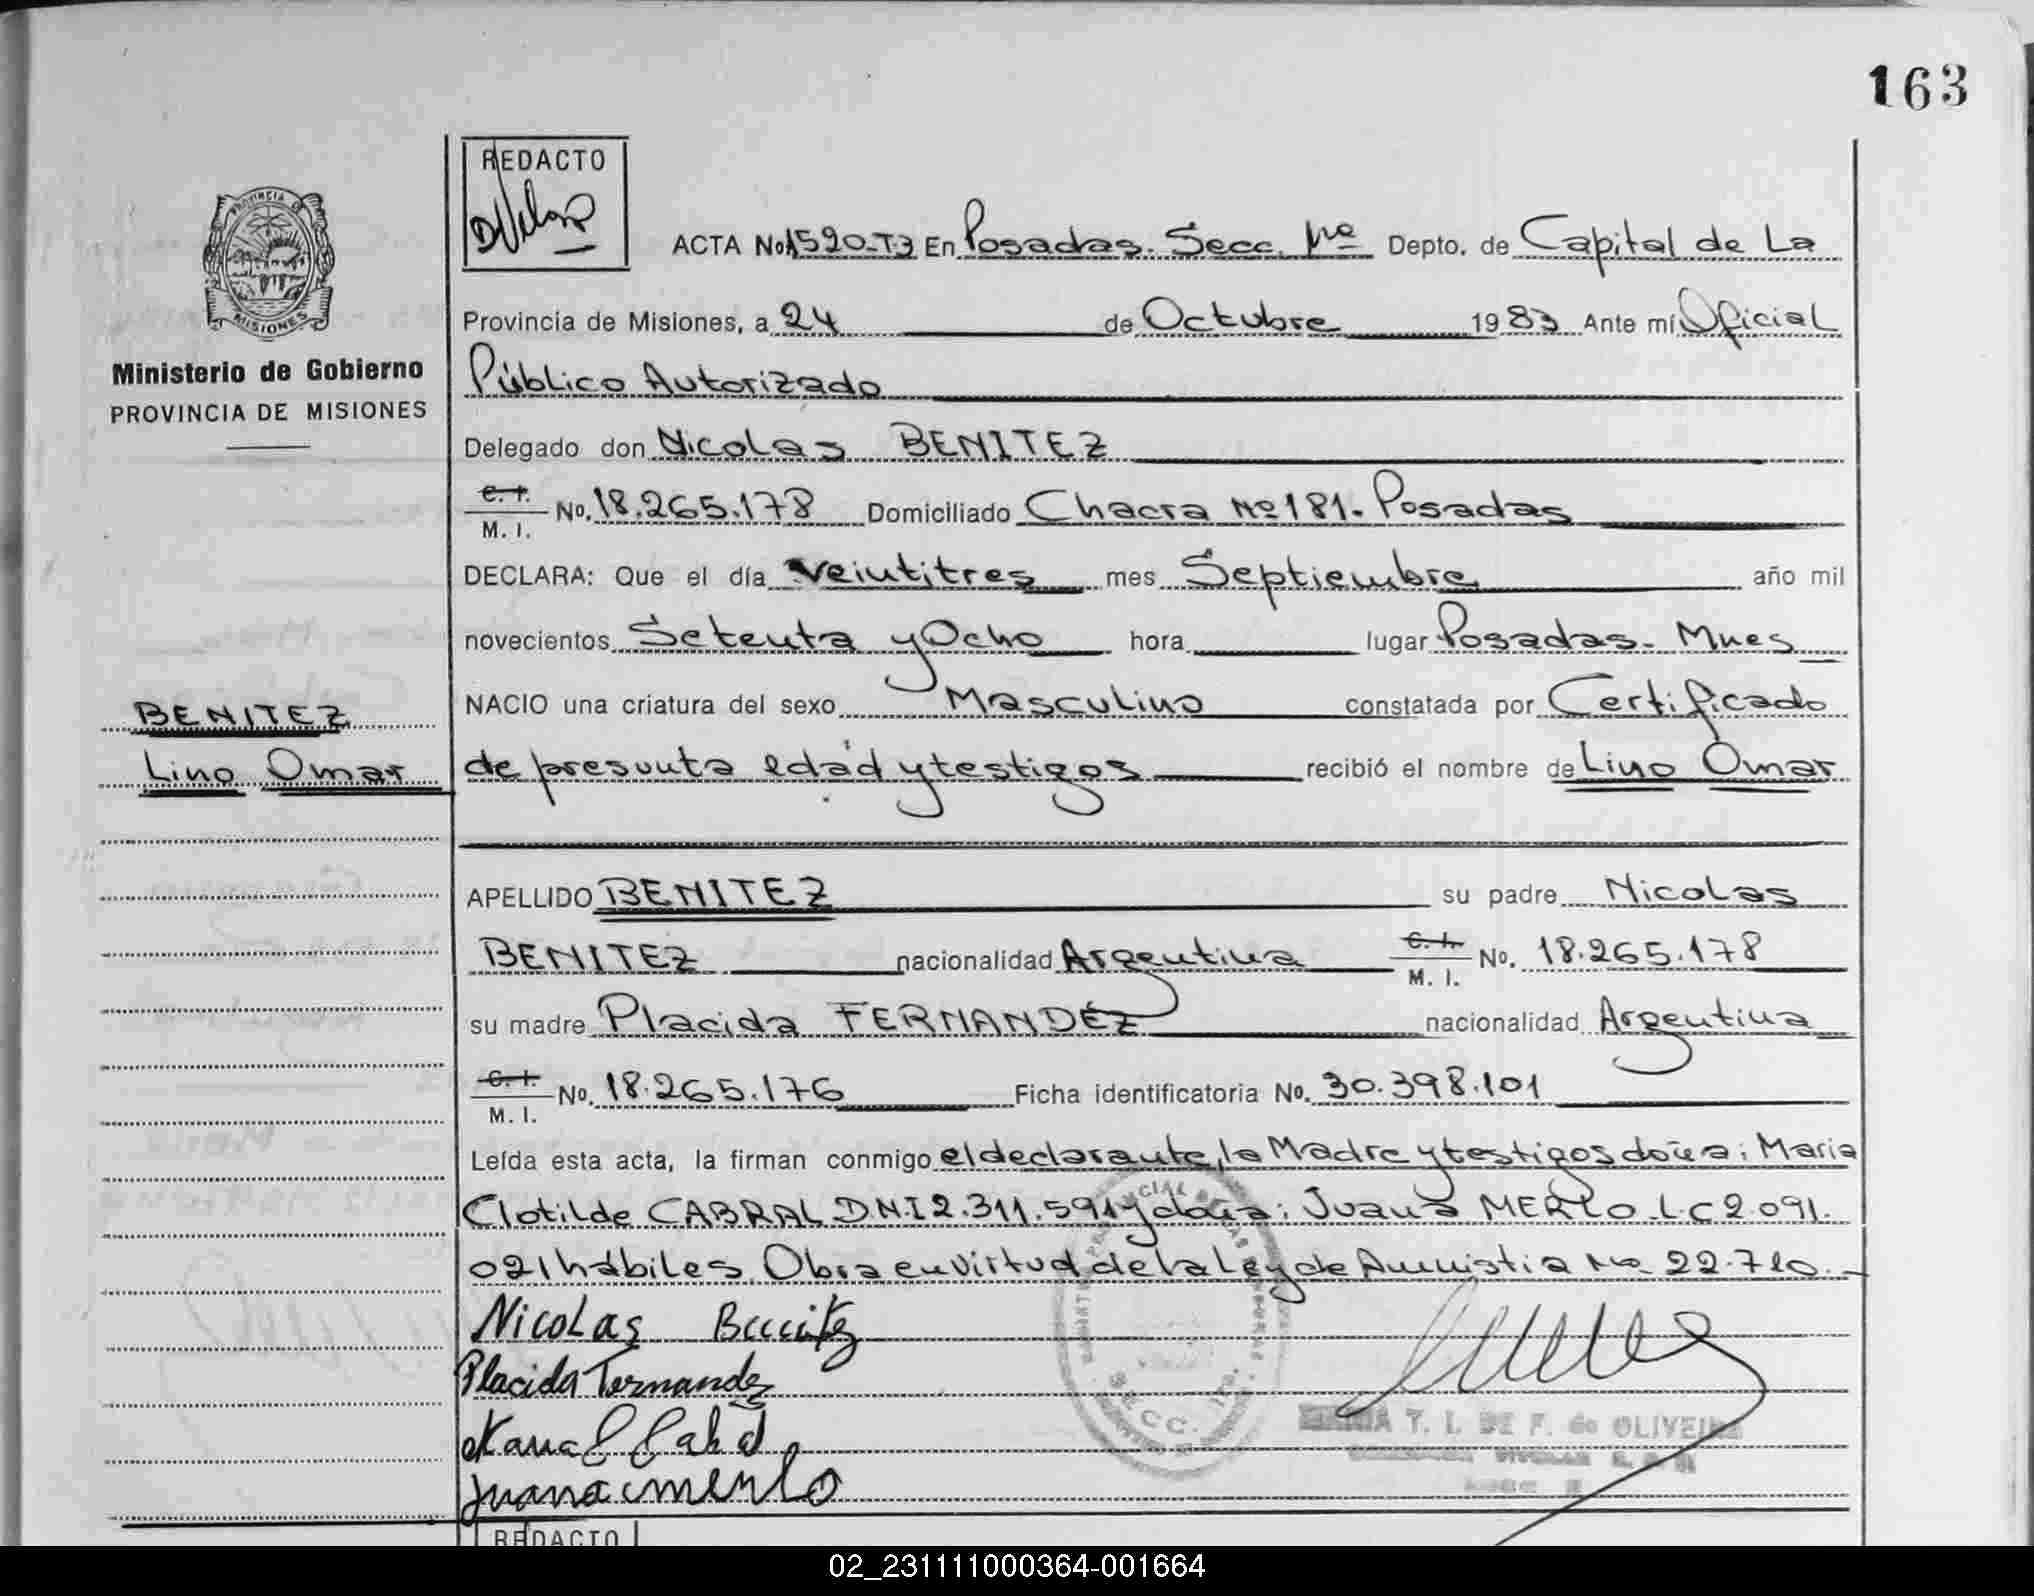 163
REDACTO
PROVINCIA D
MISIONES
ACTA No. 1520-T3 En Posadas. Secc. 1ra Depto. de Capital de La
Provincia de Misiones, a 24 de Octubre 1983 Ante mí Oficial
Ministerio de Gobierno
PROVINCIA DE MISIONES
Público Autorizado
Delegado don Nicolas BENITEZ
C. I. M. I. No. 18.265.178 Domiciliado Chacra Nº 181. Posadas
DECLARA: Que el día veintitres mes Septiembre año mil
novecientos Setenta y Ocho hora lugar Posadas. Mnes
NACIO una criatura del sexo Masculino constatada por Certificado
BENITEZ
Lino Omar
de presunta edad y testigos recibió el nombre de Lino Omar
APELLIDO BENITEZ su padre Nicolas
BENITEZ nacionalidad Argentina C. I. M. I. No. 18.265.178
su madre Placida FERNANDEZ nacionalidad Argentina
C. I. M. I. No. 18.265.176 Ficha identificatoria No. 30.398.101
Leída esta acta, la firman conmigo el declarante, la Madre y testigos doña: Maria
Clotilde CABRAL D.N.I 2.311.591 y doña: Juana MERLO. L.C 2.091.
021 hábiles. Obra en virtud de la Ley de Amnistia No. 22.710.
Nicolas Benitez
Placida Fernandez
Juana merlo
SECC. 1ra.
T. I. DE F. de OLIVEIRA
REDACTO
02_231111000364-001664